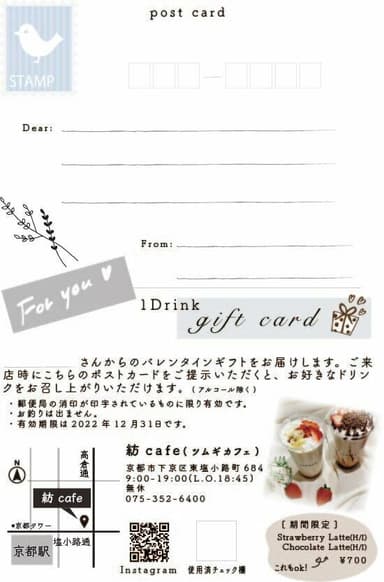 post card
STAMP
Dear:
From:
For you
1Drink
gift card
さんからのバレンタインギフトをお届けします。ご来
店時にこちらのポストカードをご提示いただくと、お好きなドリン
クをお召し上がりいただけます。(アルコール除く)
・郵便局の消印が印字されているものに限り有効です。
・お釣りは出ません。
・有効期限は2022年12月31日です。
N
高倉通
紡 cafe
●京都タワー
京都駅
塩小路通
紡 cafe(ツムギカフェ)
京都市下京区東塩小路町684
9:00-19:00(L.O.18:45)
無休
075-352-6400
Instagram
使用済チェック欄
[期間限定]
Strawberry Latte(H/I)
Chocolate Latte(H/I)
これもok!
¥700